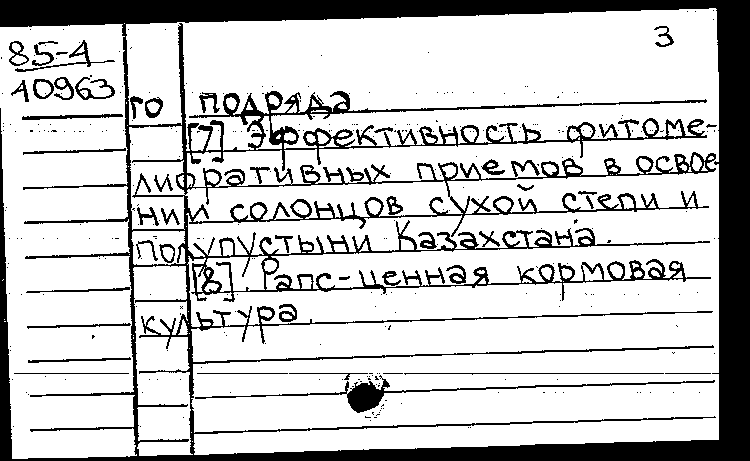 3
85-4
10963
го подряда
[7]. Эффективность фитоме-
лиоративных приемов в освое-
нии солонцов сухой степи и
полупустыни Казахстана.
[8]. Рапс-ценная кормовая
культура.